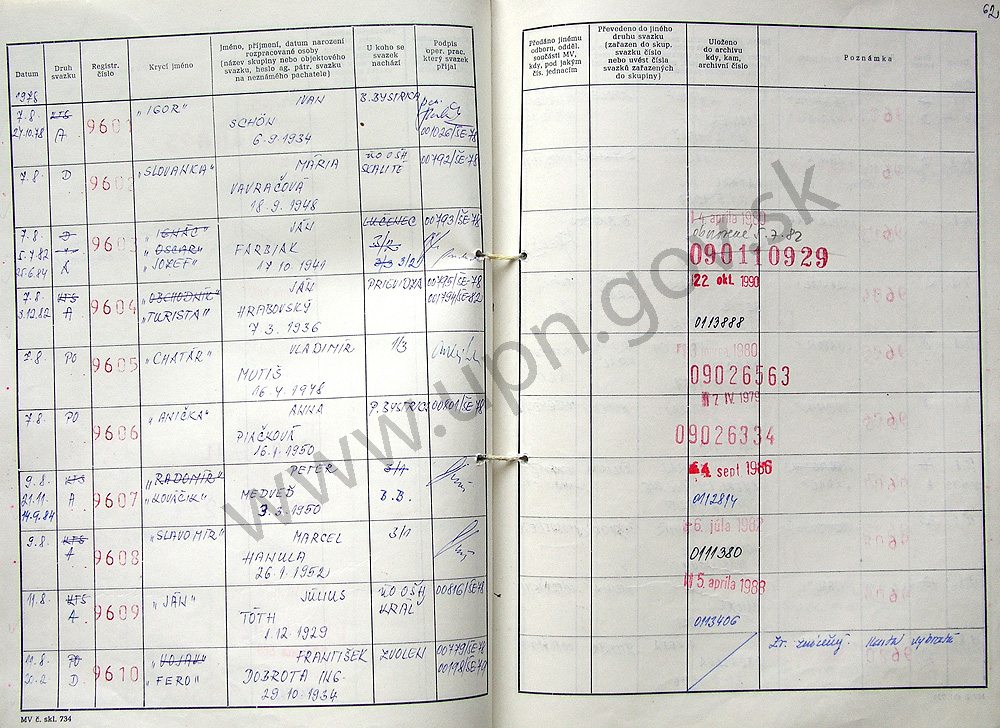 62
Datum
Druh svazku
Registr. číslo
Krycí jméno
Jméno, příjmení, datum narození
rozpracované osoby
(název skupiny nebo objektového
svazku, heslo ag. pátr. svazku
na neznámého pachatele)
U koho se
svazek
nachází
Podpis
oper. prac.
který svazek
přijal
Předáno jinému
odboru, odděl.
součásti MV,
kdy, pod jakým
čís. jednacím
Převedeno do jiného
druhu svazku
(zařazen do skup.
svazku číslo
nebo uvést čísla
svazků zařazených
do skupiny)
Uloženo
do archivu
kdy, kam,
archivní číslo
Poznámka
1978
7.8. KTS 9601 "IGOR" IVAN B.BYSTRICA
27.10.78 A SCHÖN 001026/ŠE-78
6.9.1934
7.8. D "SLOVANKA" MÁRIA ÚO OŠH 00792/ŠE-78
VAVRAČOVÁ SKALITÉ
18.9.1948
7.8. D 9603 "IGNÁC" JÁN LUČENEC 00793/ŠE-78
5.7.82 "OSCAR" FARBIAK 3/2
25.6.84 "JOZEF"
14 apríla 1980
obnovené 5.7.82
090110929
7.8. KTS 9604 "OBCHODNÍK" JÁN PRIEVIDZA 00795/ŠE-78
3.12.82 A "TURISTA" HRABOVSKÝ 001794/ŠE-82
7.3.1936
22 okt. 1990
0113888
7.8. PO 9605 "CHATÁR" VLADIMÍR 1/3
MUTIŠ
16.4.1948
1980
09026563
7.8. PO 9606 "ANIČKA" ANNA P.BYSTRICA 00801/ŠE-78
PIAČKOVÁ
16.1.1950
IV 1979
09026334
9.8. KTS 9607 "RADOMÍR" PETER 3/1
21.11. A "KOVÁČIK" MEDVEĎ B.B.
14.9.84 3.3.1950
sept 1986
0112814
9.8. KTS 9608 "SLAVOMÍR" MARCEL 3/1
A HANULA
26.1.1952
6. júla 1982
0111380
11.8. KTS 9609 "JÁN" JÚLIUS ÚO OŠH 00816/ŠE-78
A TÓTH KRÁĽ
1.12.1929
5. apríla 1988
0113406
11.8. PO 9610 "VOJAK" FRANTIŠEK ZVOLEN 00779/ŠE-78
D. "FERO" DOBROTA ING.
29.10.1934
Zv. zničený.
MV č. skl. 734
www.upn.gov.sk